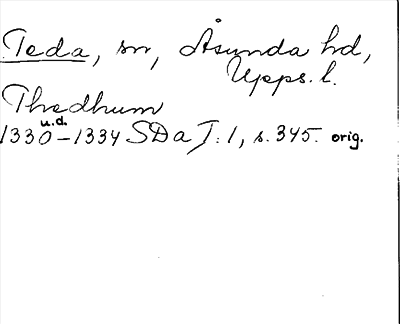 Teda, sn, Åsunda hd,
Upps. l.
Thedhum
u.d.
1330–1334 SDa I:1, s. 345. orig.